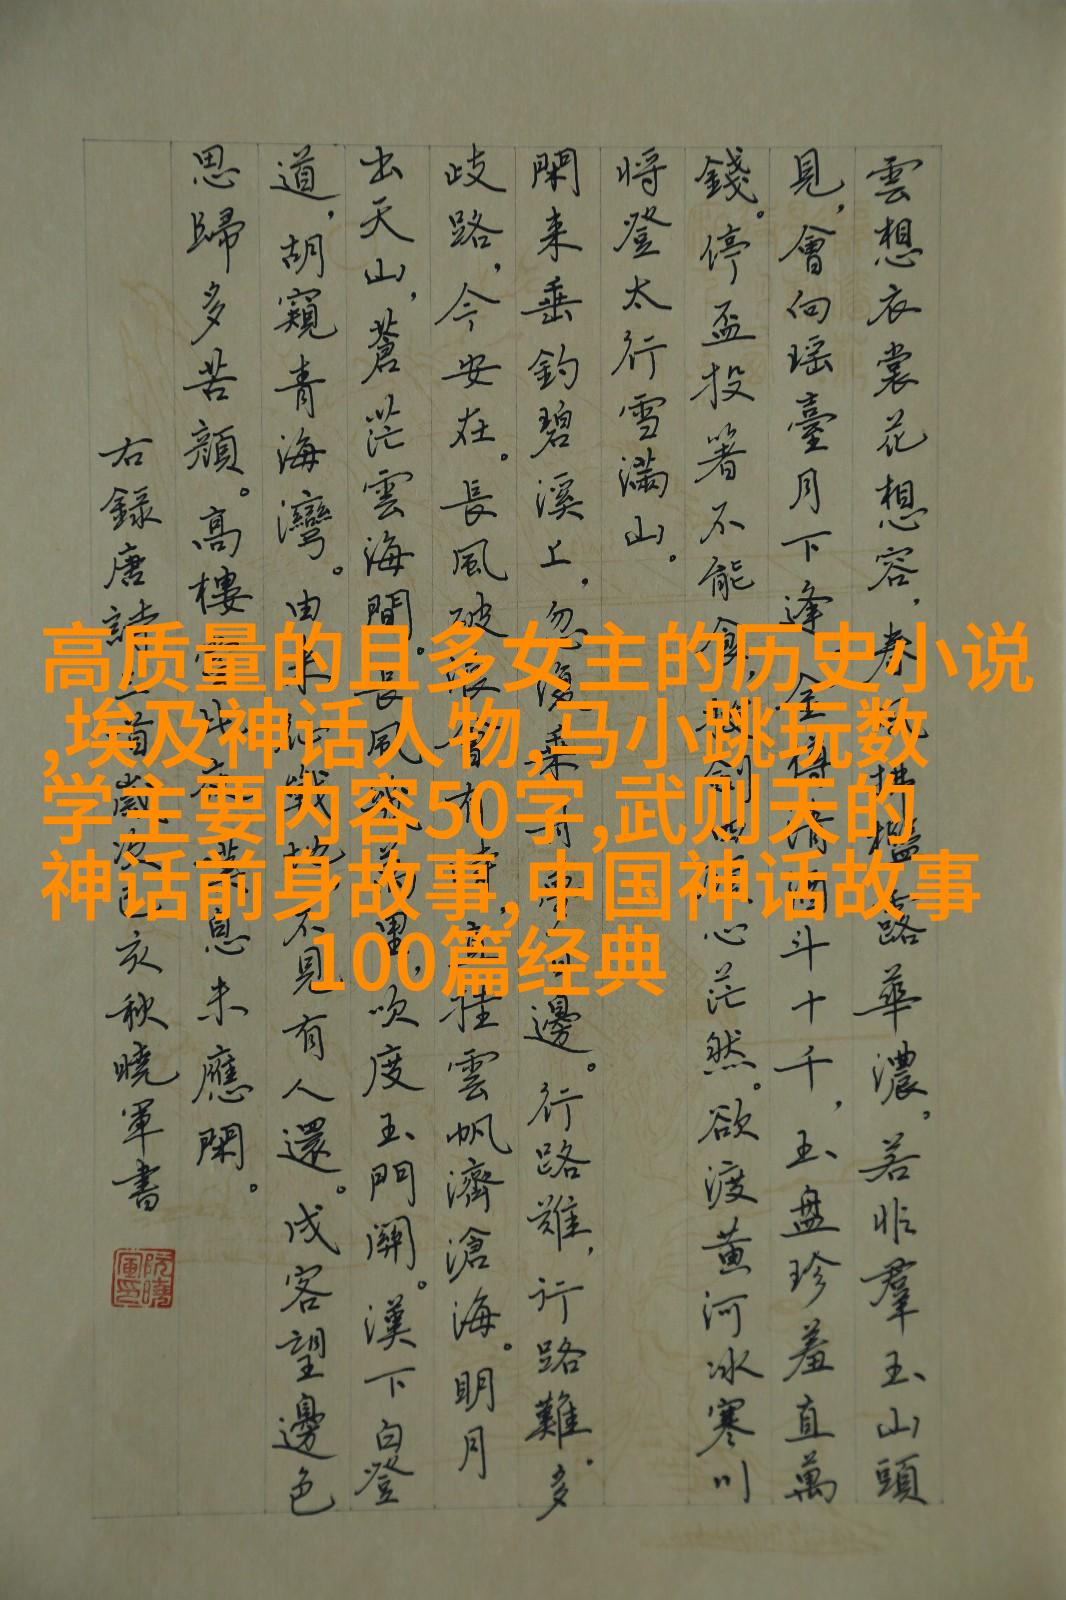 雲想衣裳花想容,春風拂檻露華濃,若非羣玉山頭
見,會向瑶臺月下逢。金樽清酒斗十千,玉盤珍羞直萬
錢。停盃投箸不能食,拔劍四顧心茫然。欲渡黄河冰寒川
将登太行雪滿山。
閑来垂釣碧溪上,忽復乘舟夢日邊。行路難,行路難。多
歧路,今安在。長風破浪會有時,直挂雲帆濟滄海。明月
出天山,蒼茫雲海間。長風幾萬里,吹度玉門關。漢下白登
道,胡窺青海灣。由来征戰地,不見有人還。戍客望邊色
思歸多苦顔。高樓當此夜,歎息未應閑。
右録唐詩三首歲次己亥秋曉軍書
阮曉軍印
高质量的且多女主的历史小说
,埃及神话人物,马小跳玩数
学主要内容50字,武则天的
神话前身故事,中国神话故事
100篇经典